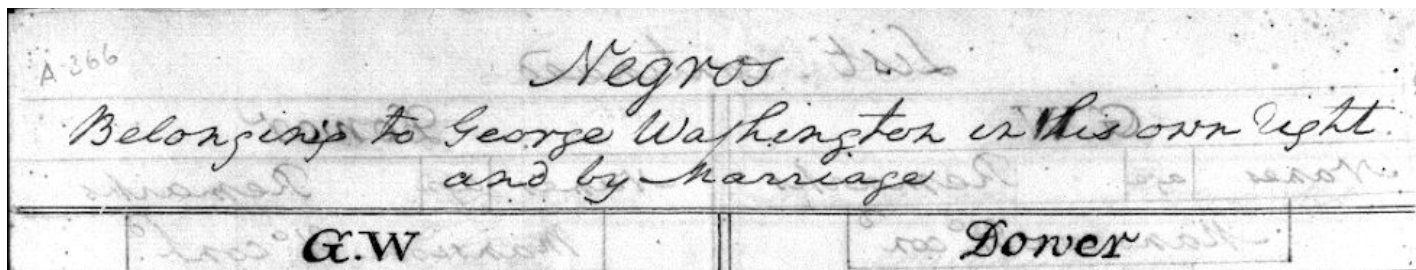 A-366
Negros
Belonging to George Washington in his own right
and by Marriage
G.W
Dower